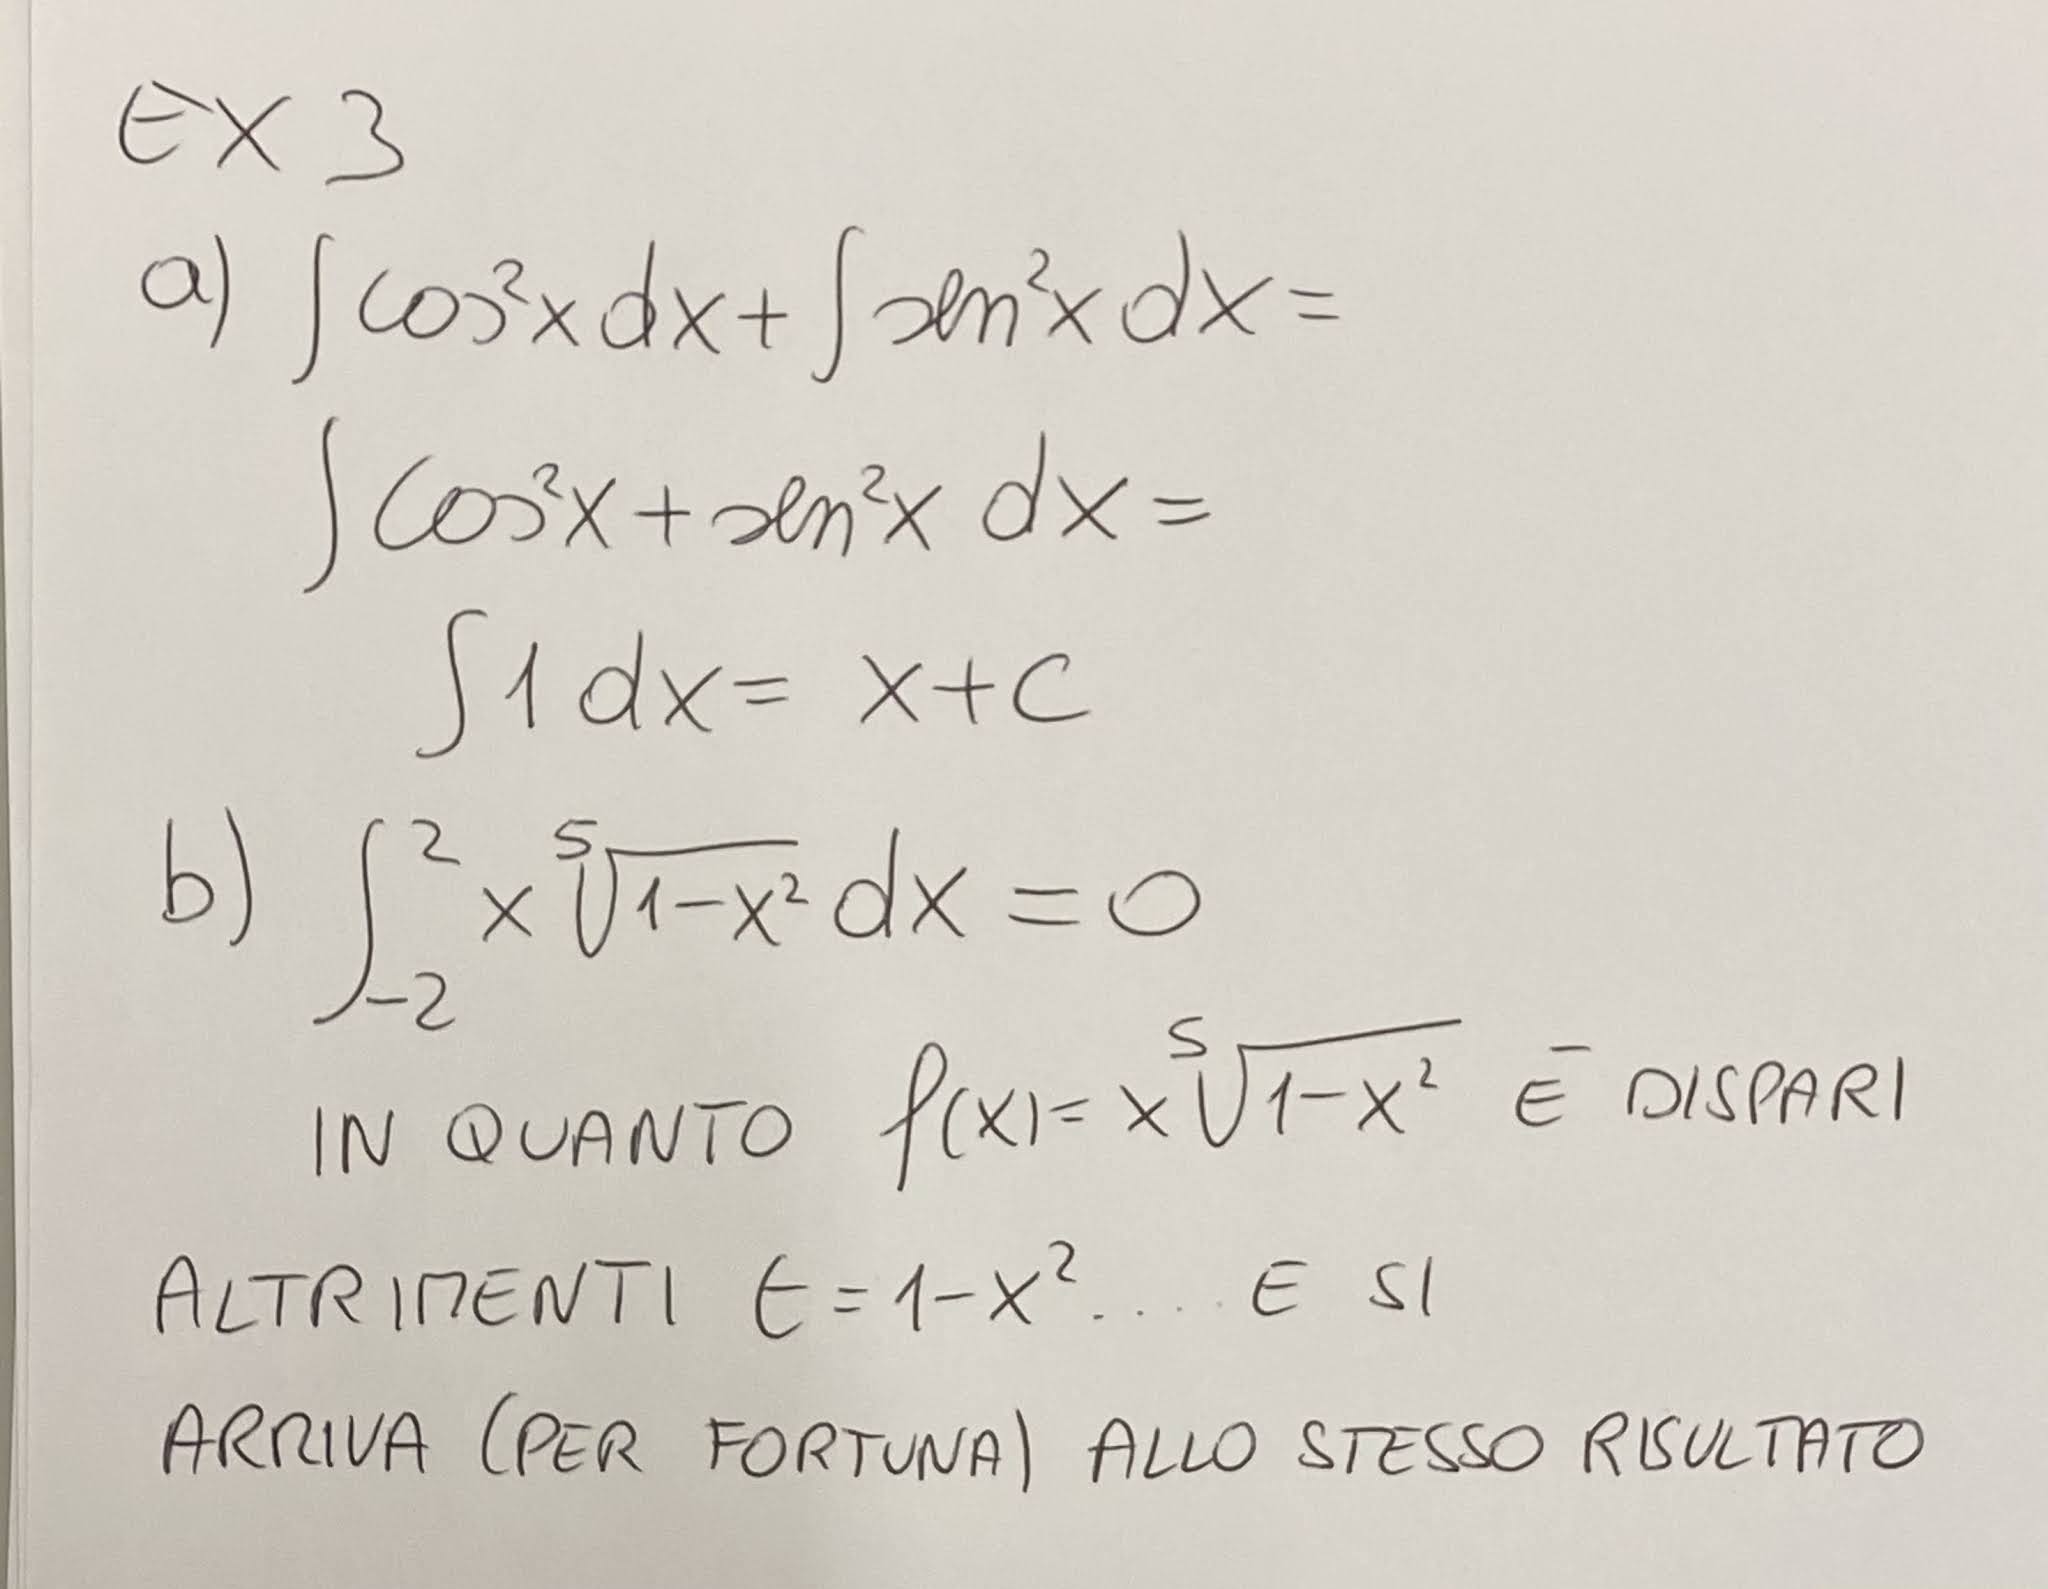 EX 3
a) ∫cos²x dx + ∫sen²x dx =
∫cos²x + sen²x dx =
∫1 dx = x+c
b) ∫₋₂² x ⁵√(1-x²) dx = 0
IN QUANTO f(x) = x ⁵√(1-x²) È DISPARI
ALTRIMENTI t = 1-x² .... E SI
ARRIVA (PER FORTUNA) ALLO STESSO RISULTATO